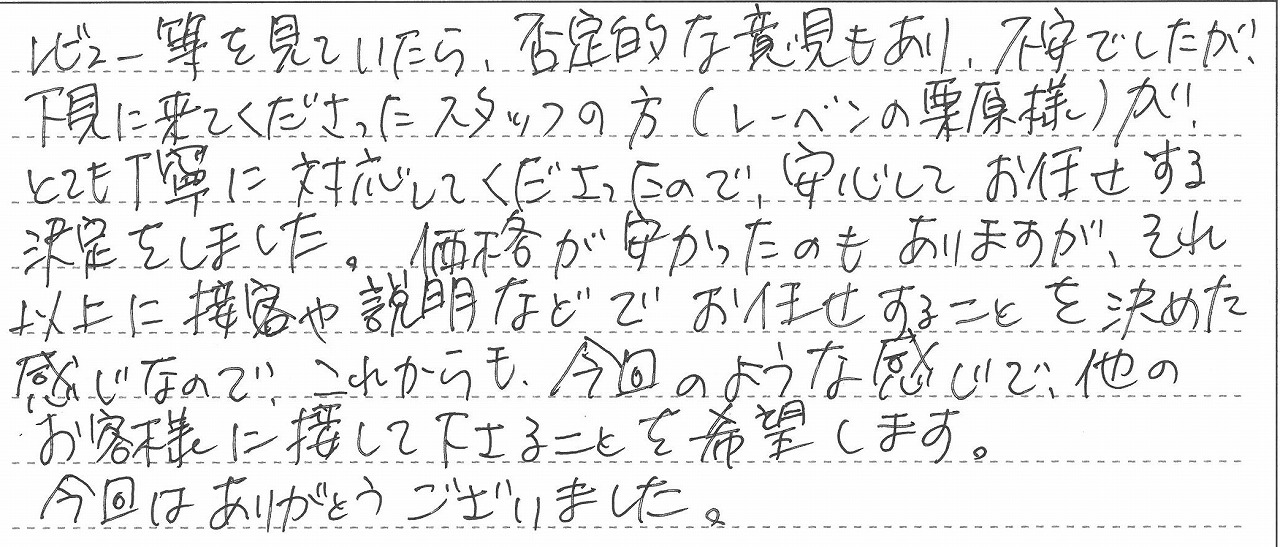 レビュー等を見ていたら、否定的な意見もあり、不安でしたが、
下見に来てくださったスタッフの方（レーベンの栗原様）が、
とても丁寧に対応してくださったので、安心してお任せする
決定をしました。価格が安かったのもありますが、それ
以上に接客や説明などでお任せすることを決めた
感じなので、これからも、今回のような感じで、他の
お客様に接して下さることを希望します。
今回はありがとうございました。